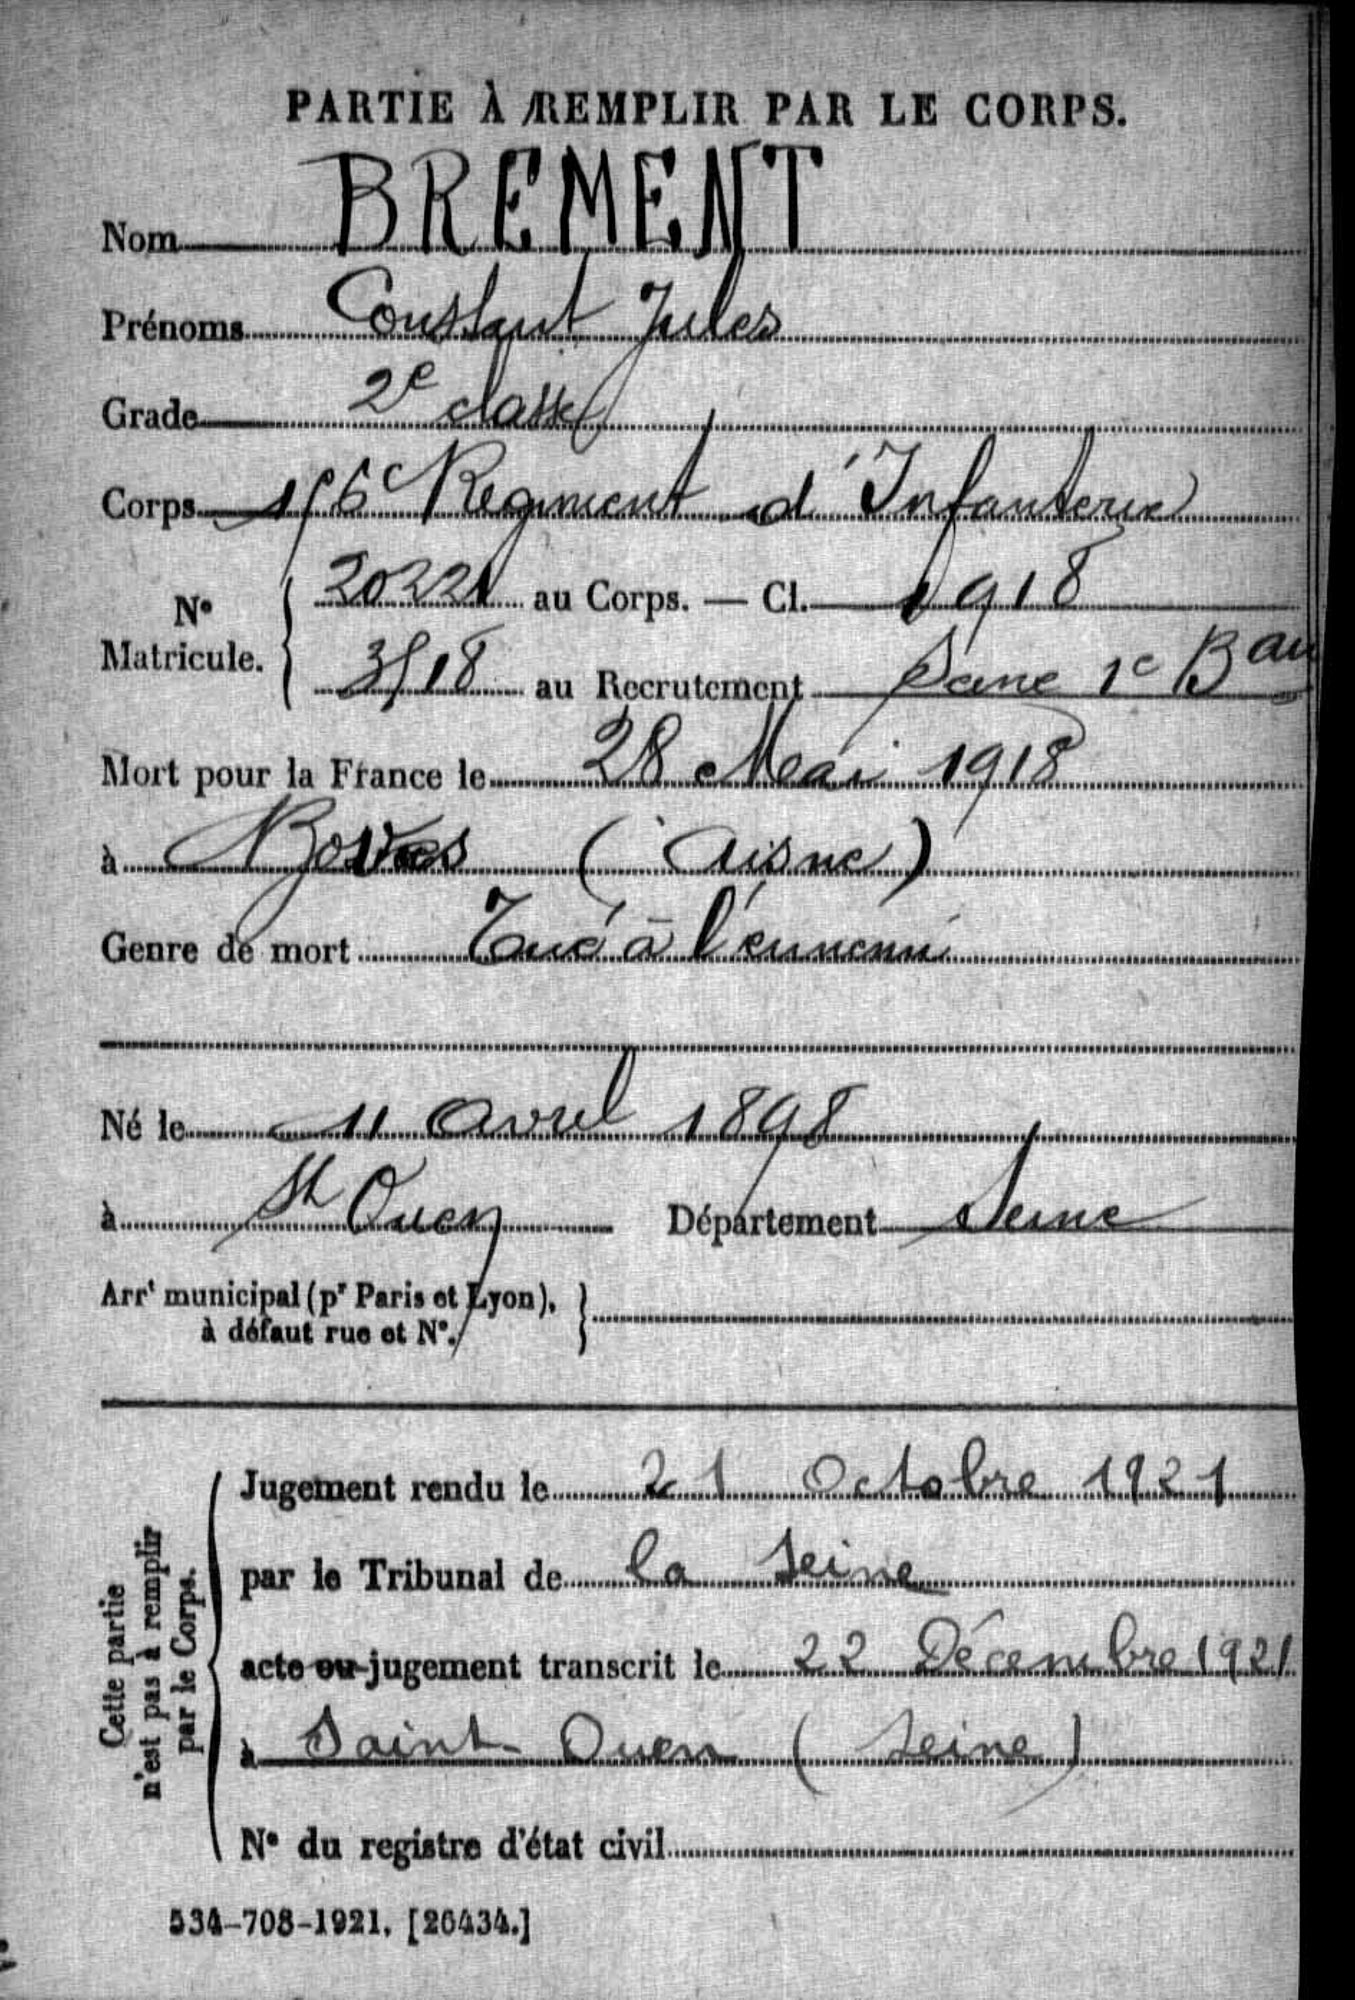 PARTIE À REMPLIR PAR LE CORPS.
Nom BREMENT
Prénoms Constant Jules
Grade 2e classe
Corps 156e Régiment d'Infanterie
No Matricule. 20221 au Corps. — Cl. 1918
3518 au Recrutement Seine 1e Bau
Mort pour la France le 28 Mai 1918
à (Aisne)
Genre de mort Tué à l'ennemi
Né le 11 Avril 1898
à St Ouen Département Seine
Arrt municipal (pr Paris et Lyon),
à défaut rue et No.
Cette partie
n'est pas à remplir
par le Corps.
Jugement rendu le 21 Octobre 1921
par le Tribunal de la Seine
acte ou jugement transcrit le 22 Décembre 1921
à Saint Ouen (Seine)
No du registre d'état civil
534-708-1921. [26434.]